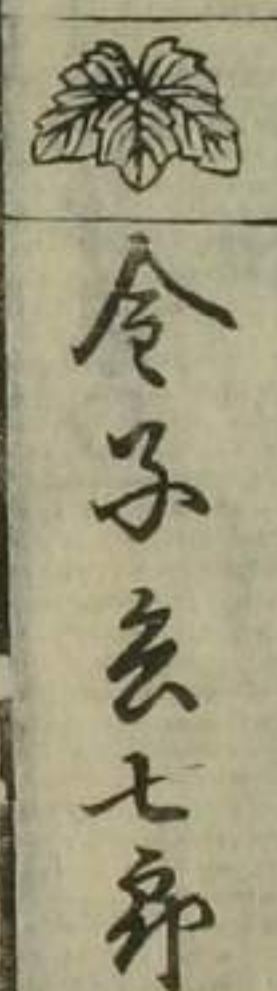 金子七郎